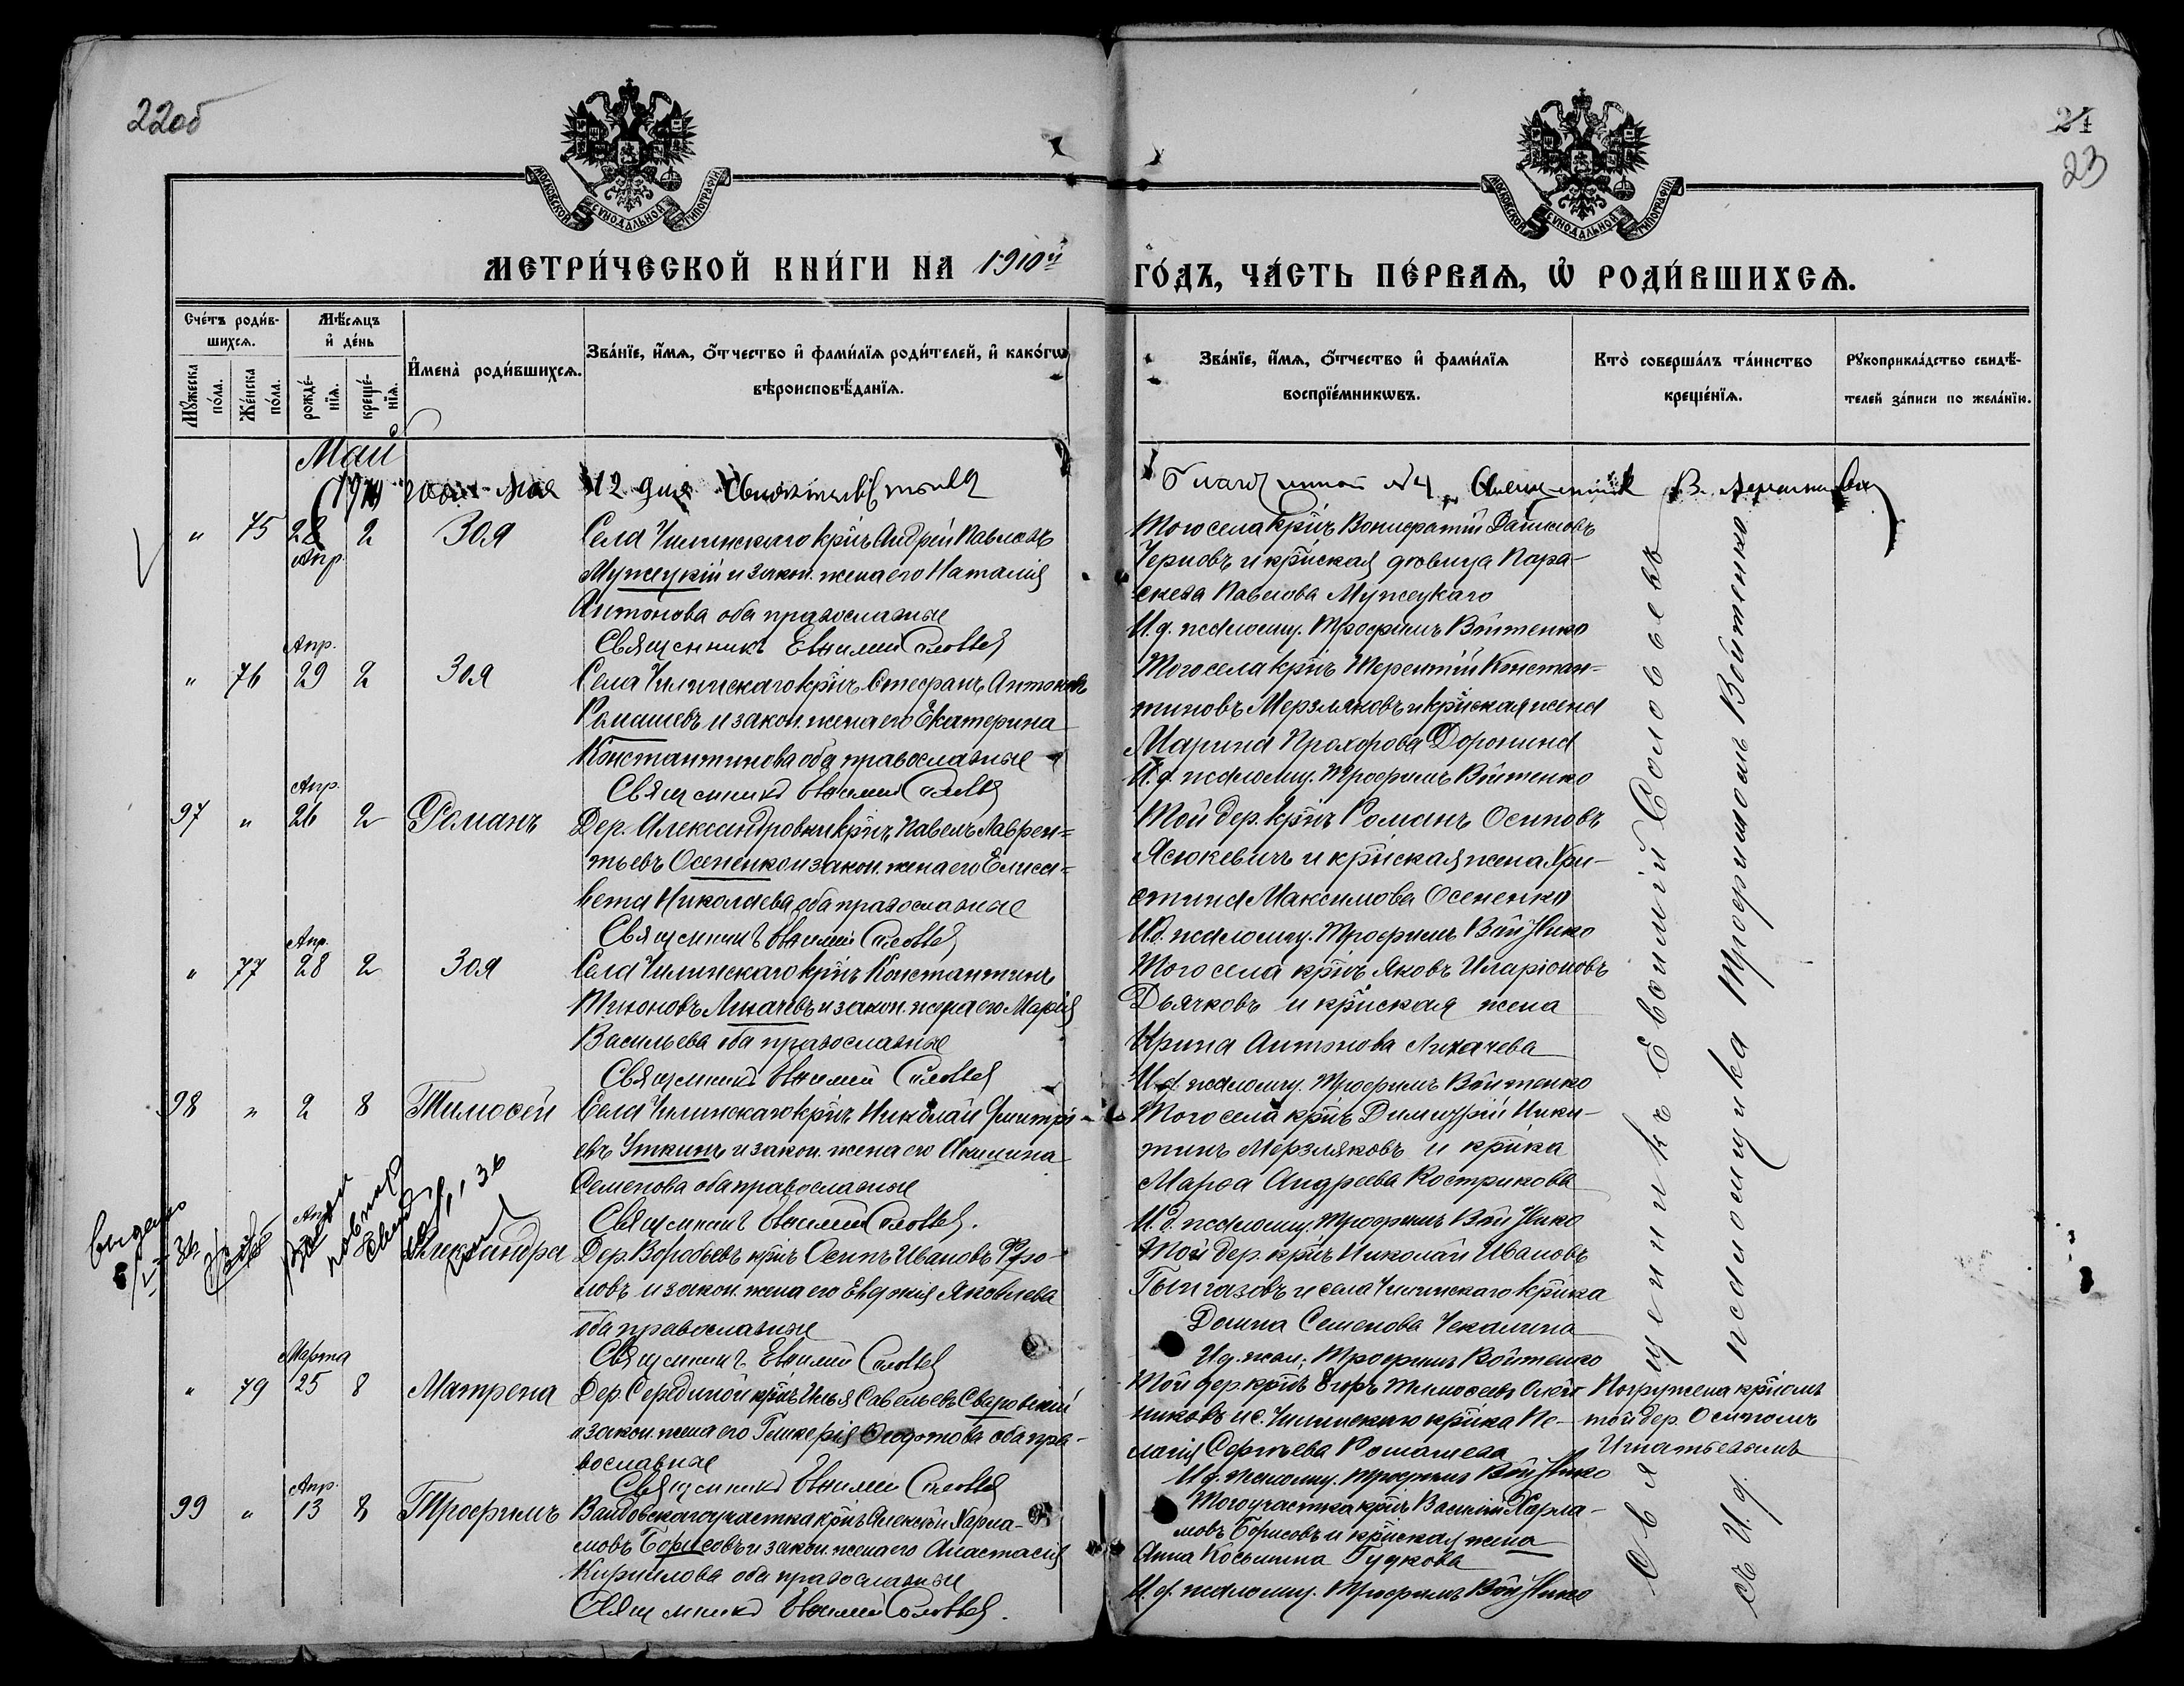 22об
24
23
МОСКОВСКОЙ СѴНОДАЛЬНОЙ ТИПОГРАФІИ
МОСКОВСКОЙ СѴНОДАЛЬНОЙ ТИПОГРАФІИ
МЕТРИ́ЧЕСКОЙ КНИ́ГИ НА 1910й
ГО́ДЪ, ЧА́СТЬ ПЕ́РВАѦ, Ѡ РОДИ́ВШИХСѦ.
Сче́тъ роди́в-
шихсѧ.
Мѣ́сѧцъ
и҆ де́нь
Мꙋ́жеска по́ла.
Же́нска по́ла.
рожде́-
нїѧ.
креще́-
нїѧ.
И҆мена̀ роди́вшихсѧ.
Зва́нїе, и҆́мѧ, ѻ҆́тчество и҆ фами́лїѧ роди́телей, и҆ како́гѡ
вѣроисповѣ́данїѧ.
Зва́нїе, и҆́мѧ, ѻ҆́тчество и҆ фами́лїѧ
воспрїе́мникѡвъ.
Кто̀ соверша́лъ та́инство
креще́нїѧ.
Рꙋкоприкла́дство свидѣ́-
телей за́писи по жела́нїю.
Май
1910 года Мая 12 дня
Благочинный №4, Священникъ В.
" 75 28 Апр. 2 Зоя
Села Чилинскаго кр̃нъ Андрей Павловъ
Мужецкій и закон. жена его Наталія
Антонова оба православные
Священникъ Евѳимій Соловьев
Того села кр̃нъ Вонифатій Даниловъ
Черновъ и кр̃нская дѣвица Пара-
скева Павлова Мужецкаго
И.д. псаломщ. Трофимъ Войтенко
" 76 Апр. 29 2 Зоя
Села Чилинскаго кр̃нъ Стефанъ Антоновъ
Ромашевъ и закон. жена его Екатерина
Константинова оба православные
Священникъ Евѳимій Соловьев
Того села кр̃нъ Терентій Констан-
тиновъ Мерзляковъ и кр̃нская жена
Марина Прохорова Доронина
И.д. псаломщ. Трофимъ Войтенко
97 " Апр. 26 2 Романъ
Дер. Александровки кр̃нъ Павелъ Лаврен-
тьевъ Осененко и закон. жена его Елиса-
вета Николаева оба православные
Священникъ Евѳимій Соловьев
Той дер. кр̃нъ Романъ Осиповъ
Ясюкевичъ и кр̃нская жена Хри-
стина Максимова Осененко
И.д. псаломщ. Трофимъ Войтенко
" 77 Апр. 28 2 Зоя
Села Чилинскаго кр̃нъ Константинъ
Тихоновъ Лихачевъ и закон. жена его Марія
Васильева оба православные
Священникъ Евѳимій Соловьев
Того села кр̃нъ Яковъ Иларіоновъ
Дьячковъ и кр̃нская жена
Ирина Антонова Лихачева
И.д. псаломщ. Трофимъ Войтенко
98 " 2 8 Тимоѳей
Села Чилинскаго кр̃нъ Николай Дмитрі-
евъ Уткинъ и закон. жена его Акилина
Семенова оба православные
Священникъ Евѳимій Соловьев.
Того села кр̃нъ Димитрій Ники-
тинъ Мерзляковъ и кр̃нка
Марѳа Андреева Кострикова
И.д. псаломщ. Трофимъ Войтенко
выдано
36
Апр.
повтор
свид
36
Александра
Дер. Воробьевъ кр̃нъ Осипъ Ивановъ Фро-
ловъ и закон. жена его Евдокія Яковлева
оба православные
Священникъ Евѳимій Соловьев
Той дер. кр̃нъ Николай Ивановъ
и села Чилинскаго кр̃нка
Домна Семенова Чекалина
И.д. псал. Трофимъ Войтенко
" 79 Марта 25 8 Матрена
Дер. Серединой кр̃нъ Илья Савельевъ Сваровскій
и закон. жена его Гликерія Ѳеодотова оба пра-
вославные
Священникъ Евѳимій Соловьев
Той дер. кр̃нъ Егоръ Тимоѳеевъ
никовъ и с. Чилинскаго кр̃нка Пе-
лагія Сергѣева Ромашева
И.д. псаломщ. Трофимъ Войтенко
Погружена кр̃номъ
той дер. Осипомъ
Игнатьевымъ
99 " Апр. 13 8 Трофимъ
участка кр̃нъ Алексѣй Харла-
мовъ Борисовъ и закон. жена его Анастасія
Кирилова оба православные
Священникъ Евѳимій Соловьев.
Того участка кр̃нъ Василій Харла-
мовъ Борисовъ и кр̃нская жена
Анна Косьмина Гудкова
И.д. псаломщ. Трофимъ Войтенко
Священникъ Евѳимій Соловьевъ
съ И.д. псаломщика Трофимомъ Войтенко